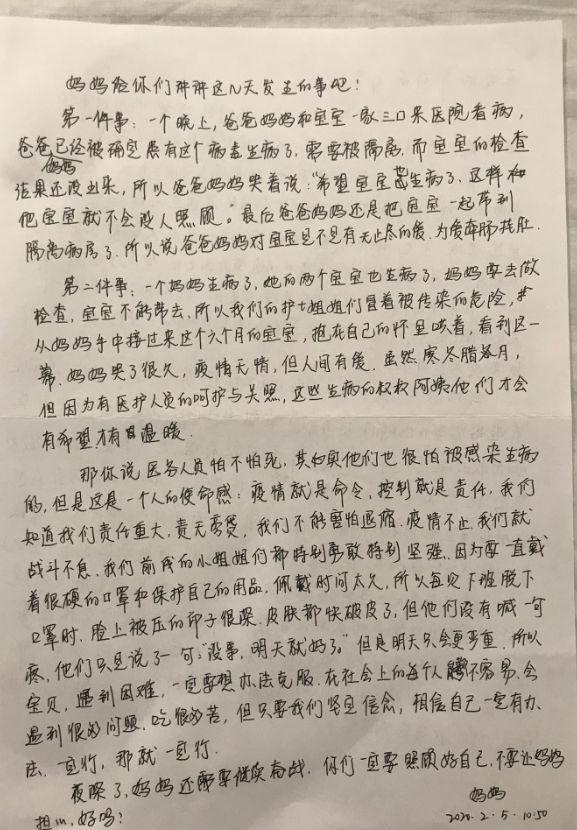 妈妈给你们讲讲这几天发生的事吧!
第一件事:一个晚上,爸爸妈妈和宝宝一家三口来医院看病,
爸爸妈妈已经被确定患有这个病毒生病了,需要被隔离,而宝宝的检查
结果还没出来,所以爸爸妈妈哭着说:“希望宝宝生病了,这样
他宝宝就不会没人照顾。”最后爸爸妈妈还是把宝宝一起带到
隔离病房了.所以说爸爸妈妈对宝宝是不是有无止尽的爱.为爱牵肠挂肚.
第二件事:一个妈妈生病了,她的两个宝宝也生病了,妈妈要去做
检查,宝宝不能带去,所以我们的护士姐姐们冒着被传染的危险,
从妈妈手中接过来这个六个月的宝宝,抱在自己的怀里哄着,看到这一
幕.妈妈哭了很久,疫情无情,但人间有爱.虽然寒冬腊月,
但因为有医护人员的呵护与关照,这些生病的叔叔阿姨他们才会
有希望才有温暖.
那你说医务人员怕不怕死,其实他们也很怕被感染生病
的,但是这是一个人的使命感:疫情就是命令,控制就是责任,我们
知道我们责任重大,责无旁贷,我们不能害怕退缩.疫情不止我们就
战斗不息.我们前线的小姐姐们都特别勇敢特别坚强.因为要一直戴
着很硬的口罩和保护自己的用品,佩戴时间太久,所以每次下班脱下
口罩时.脸上被压的印子很深.皮肤都快破皮了,但他们没有喊一句
疼,他们只是说了一句:“没事,明天就好了。”但是明天只会更严重.所以
宝贝,遇到困难,一定要想办法克服.在社会上的每个人都不容易.会
遇到很多问题.吃很多苦,但只要我们坚定信念,相信自己一定有办
法.一定行,那就一定行.
夜深了,妈妈还要继续奋战.你们一定要照顾好自己,不要让妈妈
担心,好吗?
妈妈
2020.2.5.10:50